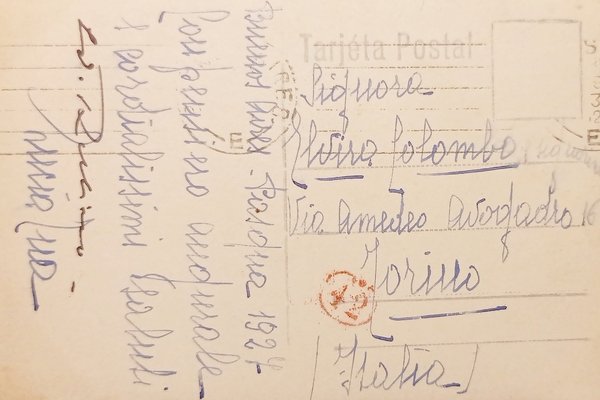 Tarjéta Postal
Buenos Aires - Pasqua 1927
Con pensiero augurale
i cordialissimi saluti
Signora
Elvira Colombo
Via Amedeo Avogadro 16
Torino
(Italia)